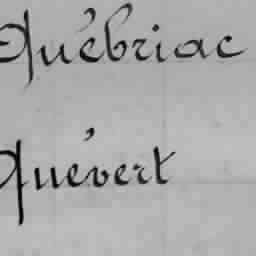 Québriac
Quévert